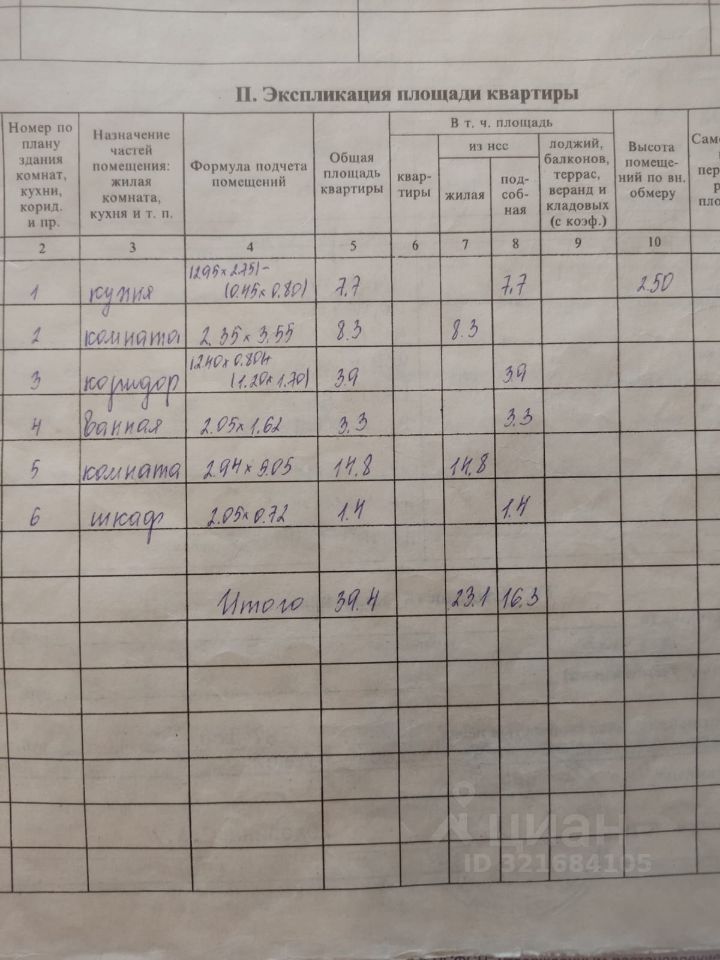 II. Экспликация площади квартиры
Номер по плану здания комнат, кухни, корид. и пр.
Назначение частей помещения: жилая комната, кухня и т. п.
Формула подчета помещений
Общая площадь квартиры
В т. ч. площадь
из нсс
квар-тиры
жилая
под-соб-ная
лоджий, балконов, террас, веранд и кладовых (с коэф.)
Высота помеще-ний по вн. обмеру
2 3 4 5 6 7 8 9 10
1 кухня (2.95×2.75)-(0.45×0.80) 7,7 7,7 2.50
2 комната 2.35×3.55 8.3 8.3
3 коридор (2.40×0.80)+(1.20×1.70) 3.9 3.9
4 ванная 2.05×1.62 3.3 3.3
5 комната 2.94×5.05 14.8 14.8
6 шкаф 2.05×0.72 1.4 1.4
Итого 39.4 23.1 16.3
циан
ID 321684105